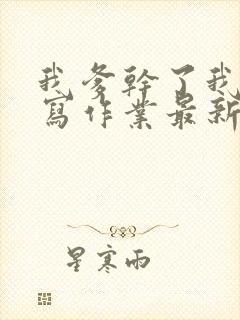 我爹幹了我
寫作業最新
星寒雨